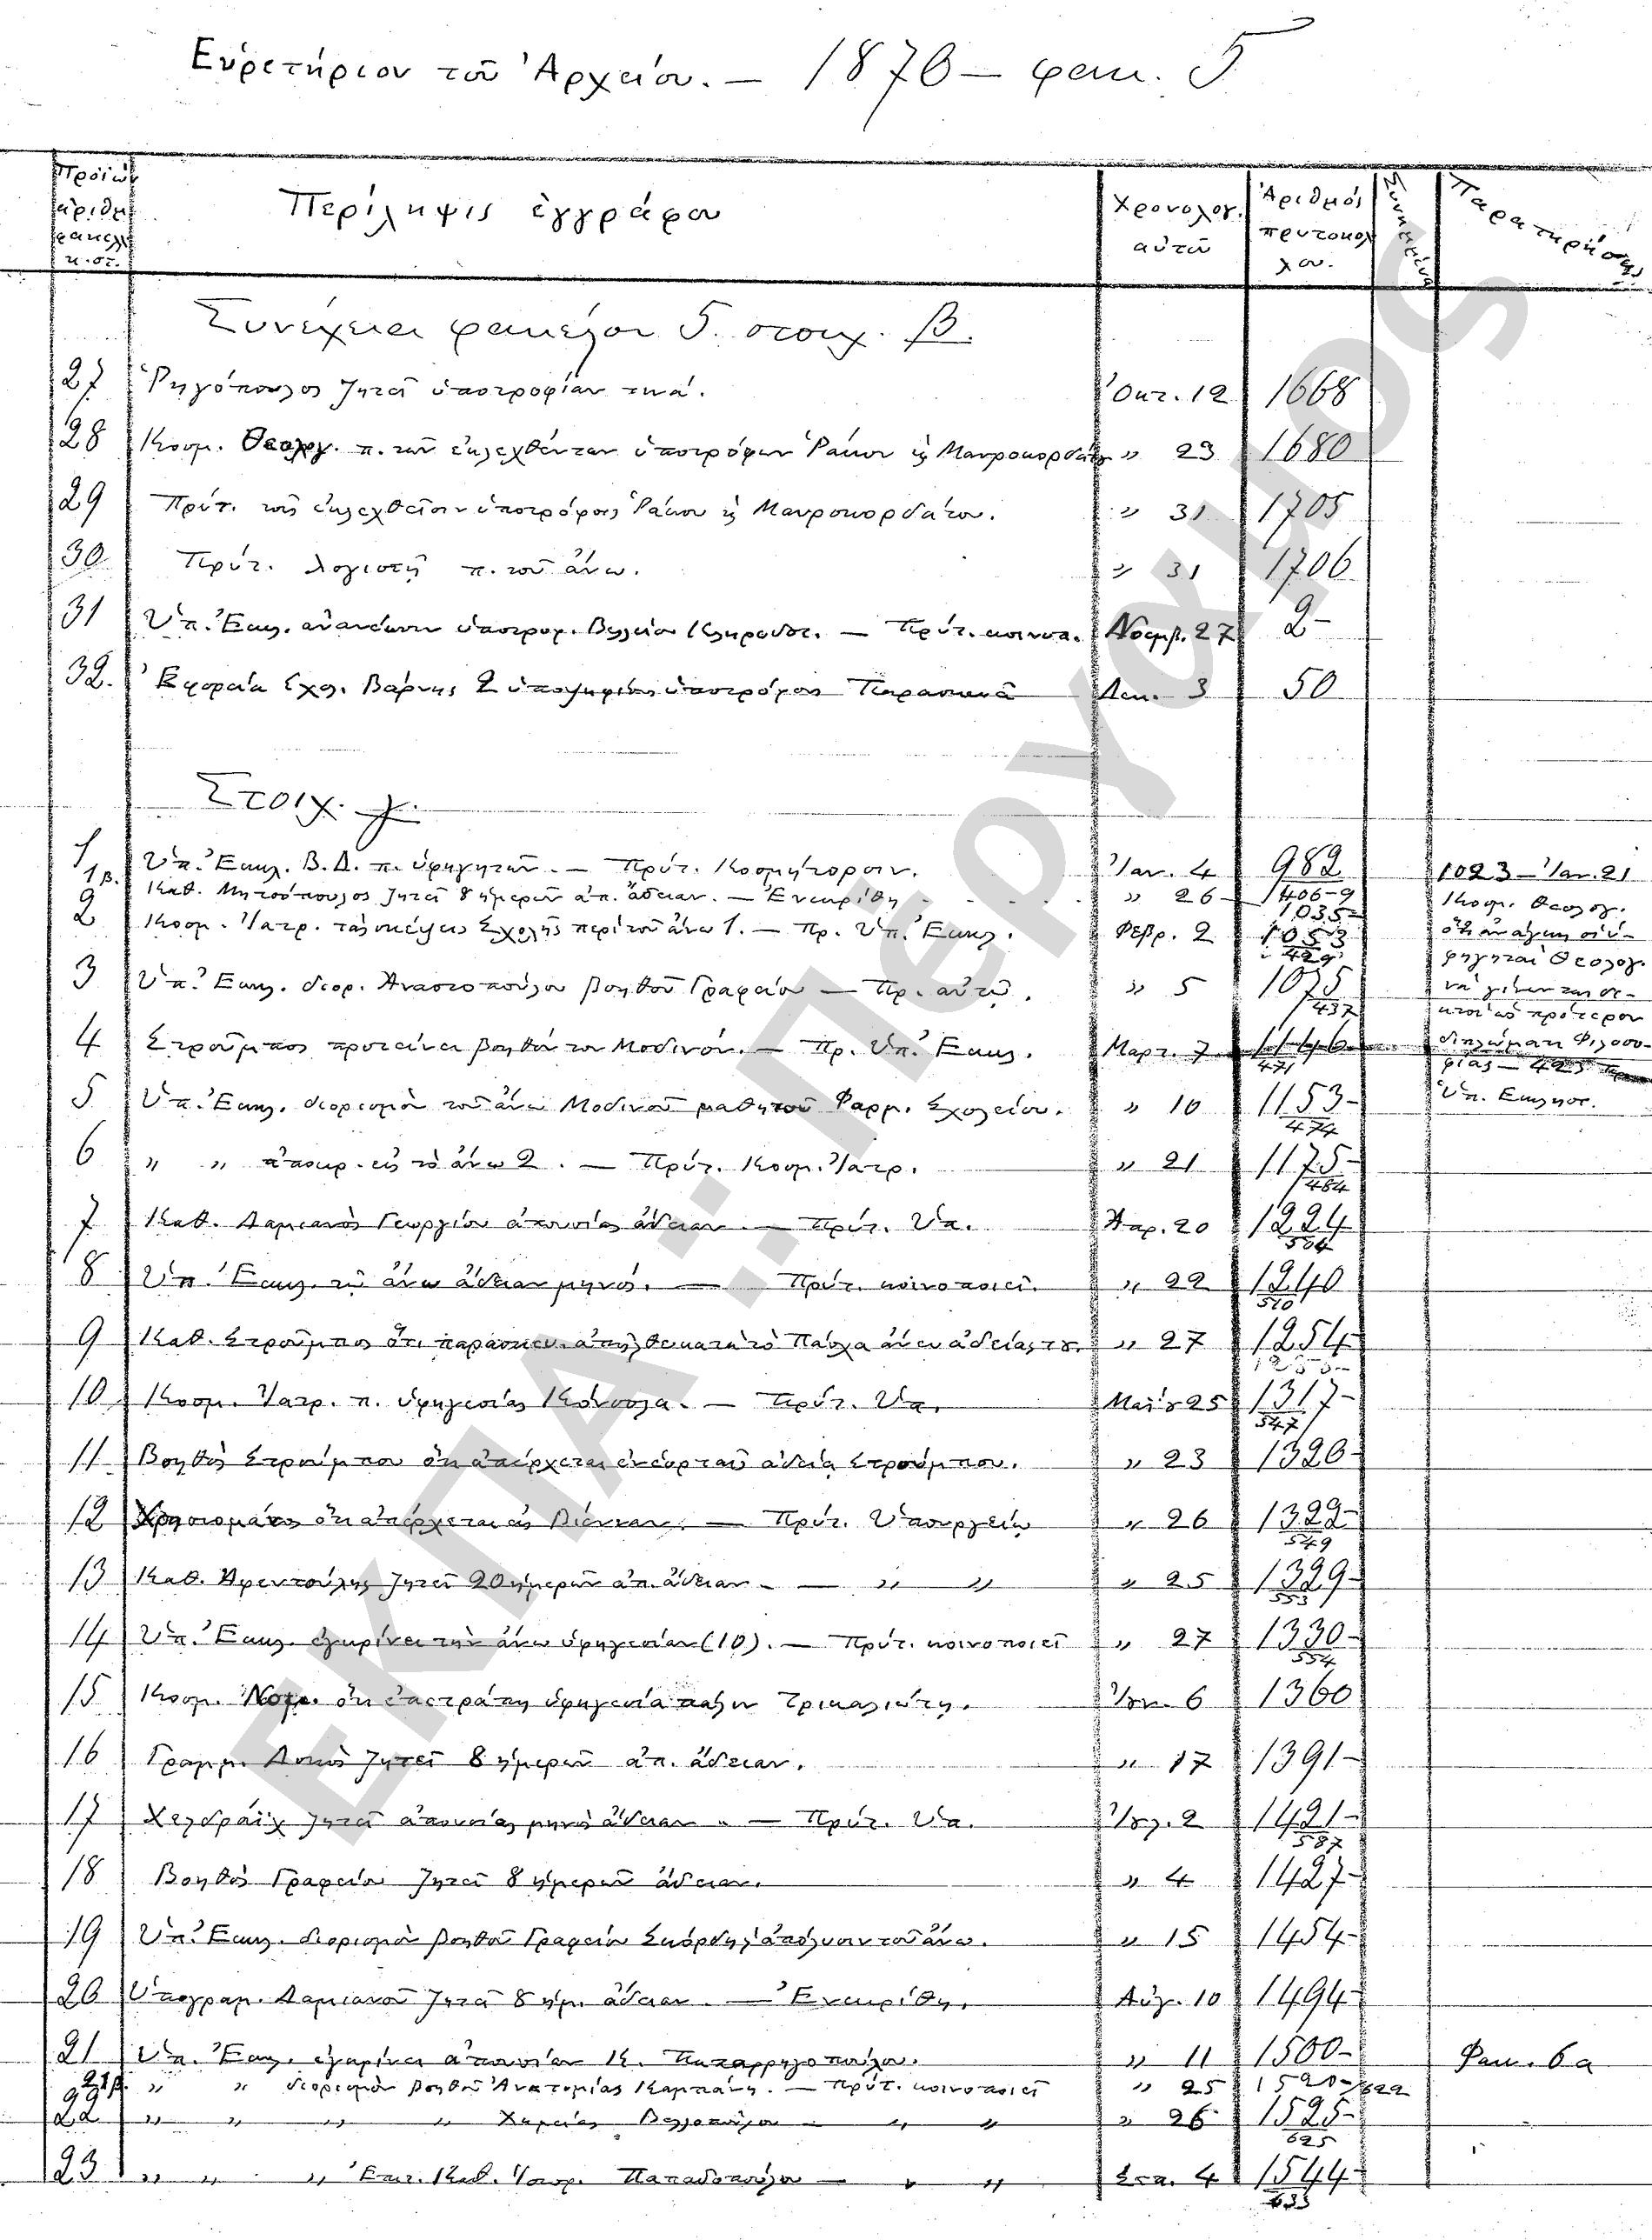 Εὑρετήριον τοῦ Ἀρχείου. — 1870 — φακ. 5
Περίληψις ἐγγράφου
Χρονολογ. αὐτοῦ
Ἀριθμὸς πρωτοκόλλου.
Παρατηρήσεις
Συνέχεια φακέλου 5. στοιχ. β.
27 Ῥηγόπουλος ζητεῖ ὑποτροφίαν τινά. Ὀκτ. 12 1668
28 Κοσμ. Θεολογ. π. τῶν ἐκλεχθέντων ὑποτρόφων Ῥάκου κ Μαυροκορδάτου » 23 1680
29 Πρύτ. τοῖς ἐκλεχθεῖσιν ὑποτρόφοις Ῥάκου κ Μαυροκορδάτου. » 31 1705
30 Πρύτ. λογιστῇ π. τοῦ ἄνω. » 31 1706
31 Ὑπ. Ἐκκλ. ὑποτροφ. Βελλίου Κληροδοτ. — Πρύτ. κοινοπ. Νοεμβ. 27 2-
32. Ἐφορεία Σχολ. Βάρνης 2 ὑποψηφίους ὑποτρόφους Δεκ. 3 50
Στοιχ. γ.
1 Ὑπ. Ἐκκλ. Β.Δ. π. ὑφηγητῶν. — Πρύτ. Κοσμήτορσιν. Ἰαν. 4 982 1023 — Ἰαν. 21
1β. Καθ. Μητσόπουλος ζητεῖ 8 ἡμερῶν ἀπ. ἄδειαν. — Ἐνεκρίθη » 26 1406-9 Κοσμ. Θεολογ.
2 Κοσμ. Ἰατρ. τὰς σκέψεις Σχολῆς περὶ τοῦ ἄνω 1. — Πρ. Ὑπ. Ἐκκλ. Φεβρ. 2 1035 1053 429 ὅτι ἀνάγκη οἱ ὑφηγηταὶ Θεολογ.
3 Ὑπ. Ἐκκλ. διορ. Ἀναστοπούλου βοηθοῦ Γραφείου — Πρ. αὐτῷ. » 5 1075 437 νὰ γίνωνται δεκτοὶ ὡς πρότερον
4 Στροῦμπος προτείνει βοηθὸν τὸν Μοδινόν. — Πρ. Ὑπ. Ἐκκλ. Μαρτ. 7 1146 471 διπλώματι Φιλοσοφίας — 425
5 Ὑπ. Ἐκκλ. διορισμὸν τοῦ ἄνω Μοδινοῦ μαθητοῦ Φαρμ. Σχολείου. » 10 1153- 474 Ὑπ. Ἐκκλησ.
6 » » ἀποκρ. εἰς τὸ ἄνω 2. — Πρύτ. Κοσμ. Ἰατρ. » 21 1175- 484
7 Καθ. Δαμιανὸς Γεωργίου ἀπουσίας ἄδειαν. — Πρύτ. Ὑπ. Ἀπρ. 20 1224 504
8 Ὑπ. Ἐκκλ. τῷ ἄνω ἄδειαν μηνός. — Πρύτ. κοινοποιεῖ. » 22 1240 510
9 Καθ. Στροῦμπος ὅτι παρασκευ. ἀπῆλθε κατὰ τὸ Πάσχα ἄνευ ἀδείας του » 27 1254
10 Κοσμ. Ἰατρ. π. ὑφηγεσίας Κόνσολα. — Πρύτ. Ὑπ. Μαΐου 25 1317- 547
11 Βοηθὸς Στρούμπου ὅτι ἀπέρχεται ἀδείᾳ Στρούμπου. » 23 1320-
12 Χρηστομάνος ὅτι ἀπέρχεται εἰς Βιέννην. — Πρύτ. Ὑπουργείῳ » 26 1322- 549
13 Καθ. Ἀφεντούλης ζητεῖ 20 ἡμερῶν ἀπ. ἄδειαν — » » » 25 1329- 553
14 Ὑπ. Ἐκκλ. ἐγκρίνει τὴν ἄνω ὑφηγεσίαν (10). — Πρύτ. κοινοποιεῖ » 27 1330- 554
15 Κοσμ. Νομ. ὅτι ἐπετράπη ὑφηγεσία Τρικαλιώτῃ. Ἰουν. 6 1360
16 Γραμμ. ζητεῖ 8 ἡμερῶν ἀπ. ἄδειαν. » 17 1391-
17 Χελδράϊχ ζητεῖ ἀπουσίας μηνὸς ἄδειαν. — Πρύτ. Ὑπ. Ἰουλ. 2 1421- 587
18 Βοηθὸς Γραφείου ζητεῖ 8 ἡμερῶν ἄδειαν. » 4 1427-
19 Ὑπ. Ἐκκλ. διορισμὸν βοηθοῦ Γραφείου Σκόρδελη ἀπόλυσιν τοῦ ἄνω. » 15 1454-
20 Ὑπογραμ. Δαμιανοῦ ζητεῖ 8 ἡμ. ἄδειαν. — Ἐνεκρίθη. Αὐγ. 10 1494-
21 Ὑπ. Ἐκκλ. ἐγκρίνει ἀπουσίαν Κ. Παπαρρηγοπούλου. » 11 1500- Φακ. 6α
21β. » » διορισμὸν βοηθοῦ Ἀνατομίας Καμπάνη. — Πρύτ. κοινοποιεῖ » 25 1520-/622
22 » » » » Χημείας » » » 26 1525- 625
23 » » » Ἐπιτ. Καθ. Ἰατρ. Παπαδοπούλου — » » Σεπ. 4 1544- 633
ΕΚΠΑ::Πέργαμος